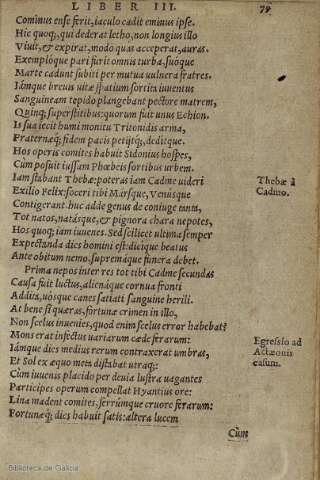 LIBER III. 79
Cominus ense ferit, iaculo cadit eminus ipse.
Hic quoq; qui dederat letho, non longius illo
Viuit, & expirat, modo quas acceperat, auras.
Exemploque pari furit omnis turba: suoque
Marte cadunt subiti per mutua vulnera fratres.
Iámque breuis uitæ spatium sortita iuuentus
Sanguineam tepido plangebant pectore matrem,
Quinq; superstitibus: quorum fuit unus Echion.
Is sua iecit humi monitu Tritonidis arma,
Fraternæq; fidem pacis petijtq; deditque.
Hos operis comites habuit Sidonius hospes,
Cum posuit iussam Phœbeis sortibus urbem.
Iam stabant Thebæ: poteras iam Cadme uideri
Thebæ à
Exilio Felix: soceri tibi Mársque, Venúsque
Cadmo.
Contigerant. huc adde genus de coniuge tanta,
Tot natos, natásque, & pignora chara nepotes,
Hos quoq; iam iuuenes. Sed scilicet ultima semper
Expectanda dies homini est: dicique beatus
Ante obitum nemo, supremáque funera debet.
Prima nepos inter res tot tibi Cadme secundas
Causa fuit luctus, alienáque cornua fronti
Addita, uósque canes satiati sanguine herili.
At bene si quæras, fortunæ crimen in illo,
Non scelus inuenies, quod enim scelus error habebat?
Mons erat infectus uariarum cæde ferarum:
Egressio ad
Iámque dies medius rerum contraxerat umbras,
Actæonis
Et Sol ex æquo meta distabat utraq;:
casum.
Cum iuuenis placido per deuia lustra uagantes
Participes operum compellat Hyantius ore:
Lina madent comites, ferrúmque cruore ferarum:
Fortunæq; dies habuit satis: altera lucem
Cùm
Biblioteca de Galicia